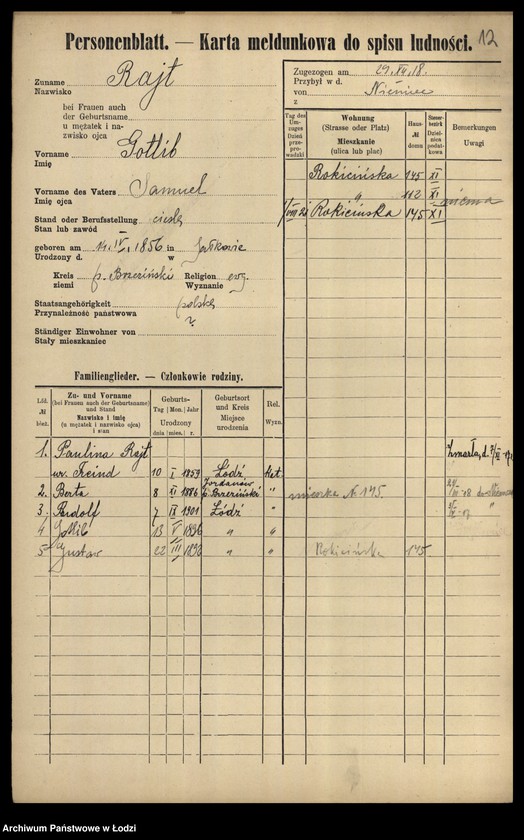 Personenblatt. — Karta meldunkowa do spisu ludności. 12
Zuname Rajt
Nazwisko
bei Frauen auch
der Geburtsname
u mężatek i na-
zwisko ojca
Vorname Gotlib
Imię
Vorname des Vaters Samuel
Imię ojca
Stand oder Berufsstellung cieśla
Stan lub zawód
geboren am 14. IV, 1856 in
Urodzony d. w
Kreis p. Brzeziński Religion ewg.
ziemi Wyznanie
Staatsangehörigkeit polska
Przynależność państwowa ?
Ständiger Einwohner von
Stały mieszkaniec
Zugezogen am 29. XII. 18.
Przybył w d.
von Niemiec
z
Tag des Um-
zuges
Dzień prze-
prowadzki
Wohnung
(Strasse oder Platz)
Mieszkanie
(ulica lub plac)
Haus-
№
domu
Steuer-
bezirk
Dziel-
nica po-
datkowa
Bemerkungen
Uwagi
Rokicińska 145 XI
" 162 XI
Rokicińska 145 XI niema
Familienglieder. — Członkowie rodziny.
Lfd.
№
bież.
Zu- und Vorname
(bei Frauen auch der Geburtsname)
und Stand
Nazwisko i imię
(u mężatek i nazwisko ojca)
i stan
Geburts-
Tag Mon. Jahr
Urodzony
dnia mies. r.
Geburtsort
und Kreis
Miejsce
urodzenia
Rel.
Wyzn.
1. Paulina Rajt Zmarła, d.
ur. Freind 10 I 1859 Łódź Kat.
2. Berta 8 XI 1886 Jordanów p. Brzeziński " mieszka N. 145.
3. Rudolf 7 IX 1901 Łódź "
4 Gotlib 13 V 1896 " "
5 Gustaw 22 III 1898 " " Rokicińska 145
Archiwum Państwowe w Łodzi